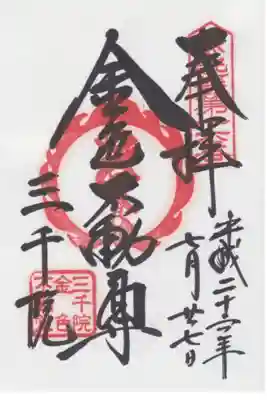 奉拝
平成二十六年
七月廿七日
金色不動尊
三千院
三千院
金色